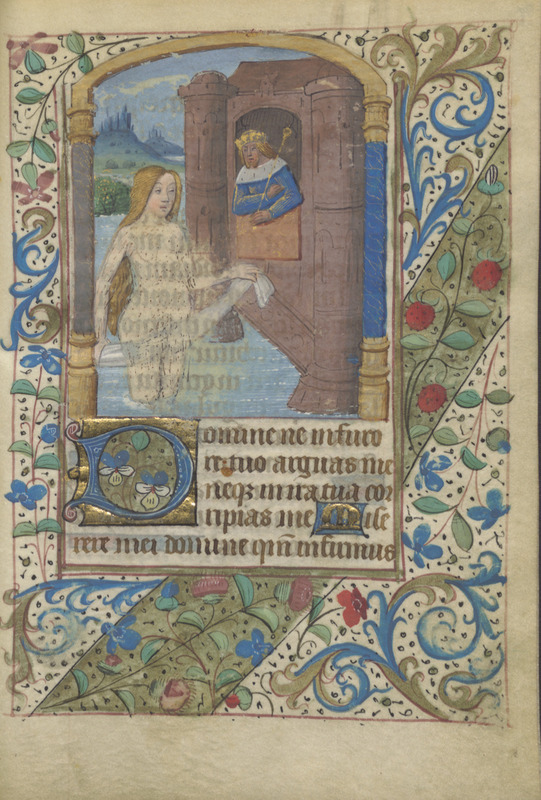 Domine ne in furo
re tuo arguas me
neqz in ira tua cor
ripias me Mise
rere mei domine qm̄ infirmus